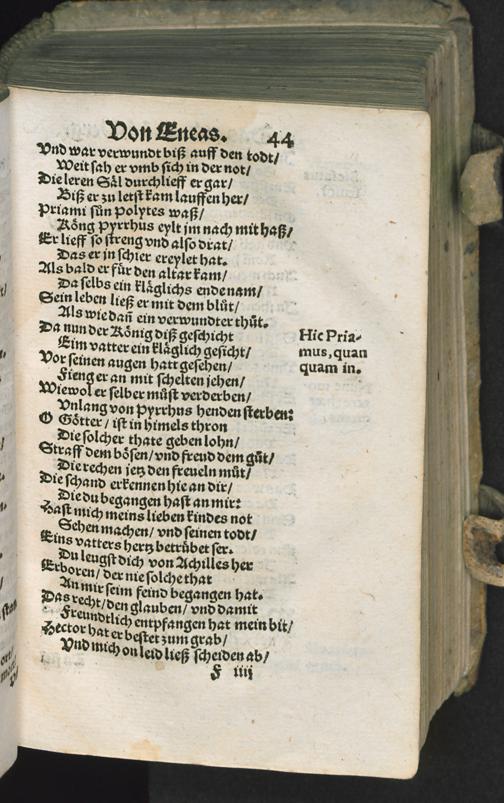 Von Æneas. 44
Vnd war verwundt biß auff den todt/
Weit sah er vmb sich in der not/
Die leren Säl durchlieff er gar/
Biß er zu letst kam lauffen her/
Priami sün Polytes waß/
Köng Pyrrhus eylt jm nach mit haß/
Er lieff so streng vnd also drat/
Das er in schier ereylet hat.
Als bald er für den altar kam/
Da selbs ein kläglichs ende nam/
Sein leben ließ er mit dem blůt/
Als wie dañ ein verwundter thůt.
Da nun der König diß geschicht
Eim vatter ein kläglich gesicht/
Vor seinen augen hatt gesehen/
Fieng er an mit schelten jehen/
Wiewol er selber můst verderben/
Vnlang von Pyrrhus henden sterben:
O Götter/ ist in himels thron
Die solcher thate geben lohn/
Straff dem bösen/ vnd freud dem gůt/
Die rechen jetz den freueln můt/
Die schand erkennen hie an dir/
Die du begangen hast an mir:
Hast mich meins lieben kindes not
Sehen machen/ vnd seinen todt/
Eins vatters hertz betrübet ser.
Du leugst dich von Achilles her
Erboren/ der nie solche that
An mir seim feind begangen hat.
Das recht/ den glauben/ vnd damit
Freundtlich entpfangen hat mein bit/
Hector hat er bestet zum grab/
Vnd mich on leid ließ scheiden ab/
F iiij
Hic Pria-
mus, quan
quam in.